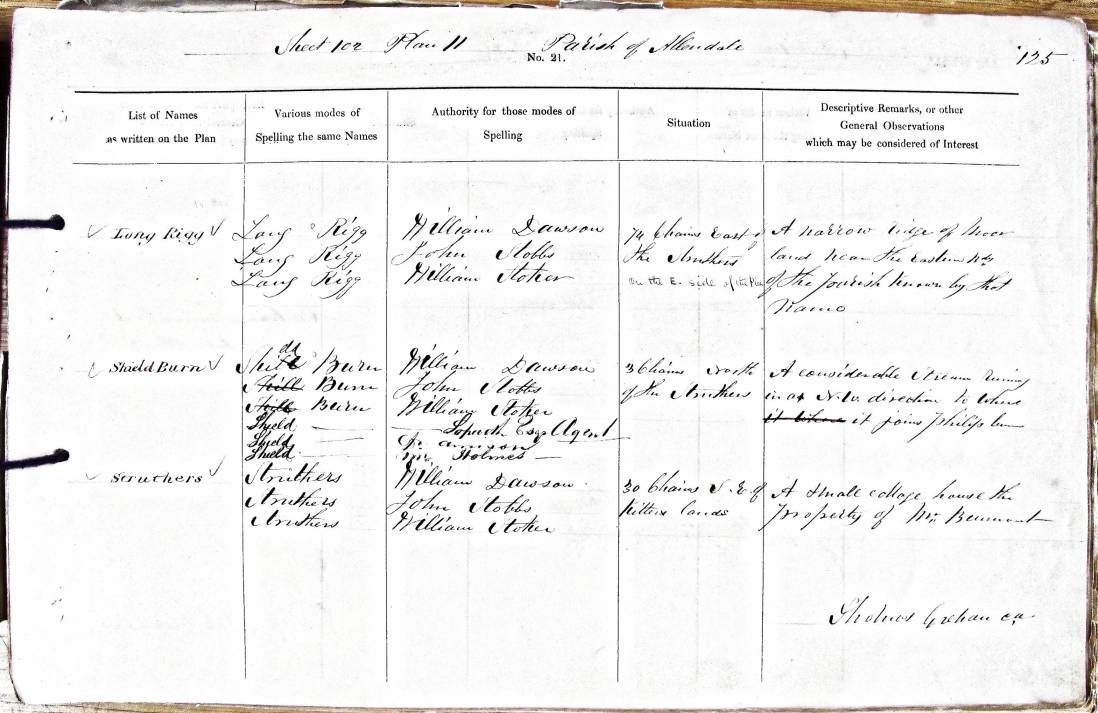 Sheet 102 Plan 11 Parish of Allendale
No. 21.
125
List of Names
as written on the Plan
Various modes of
Spelling the same Names
Authority for those modes of
Spelling
Situation
Descriptive Remarks, or other
General Observations
which may be considered of Interest
Long Rigg
Lang Rigg
Lang Rigg
Lang Rigg
William Dawson
John Stobbs
William Stoker
74 Chains East of
the Struthers
on the E. side of the Plan
A narrow ridge of Moor
land near the Eastern
of the Parish known by that
Name
Shield Burn
Burn
Burn
Burn
Shield
Shield
Shield
William Dawson
John Stobbs
William Stoker
Sopwith Esqr Agent
Holmes
3 Chains North
of the Struthers
A considerable Stream
in a N.W. direction to where
it where it joins Philips burn
Struthers
Struthers
Struthers
Struthers
William Dawson
John Stobbs
William Stoker
30 Chains S.E. of
lands
A small cottage house the
property of Mr. Beaumont
Thomas